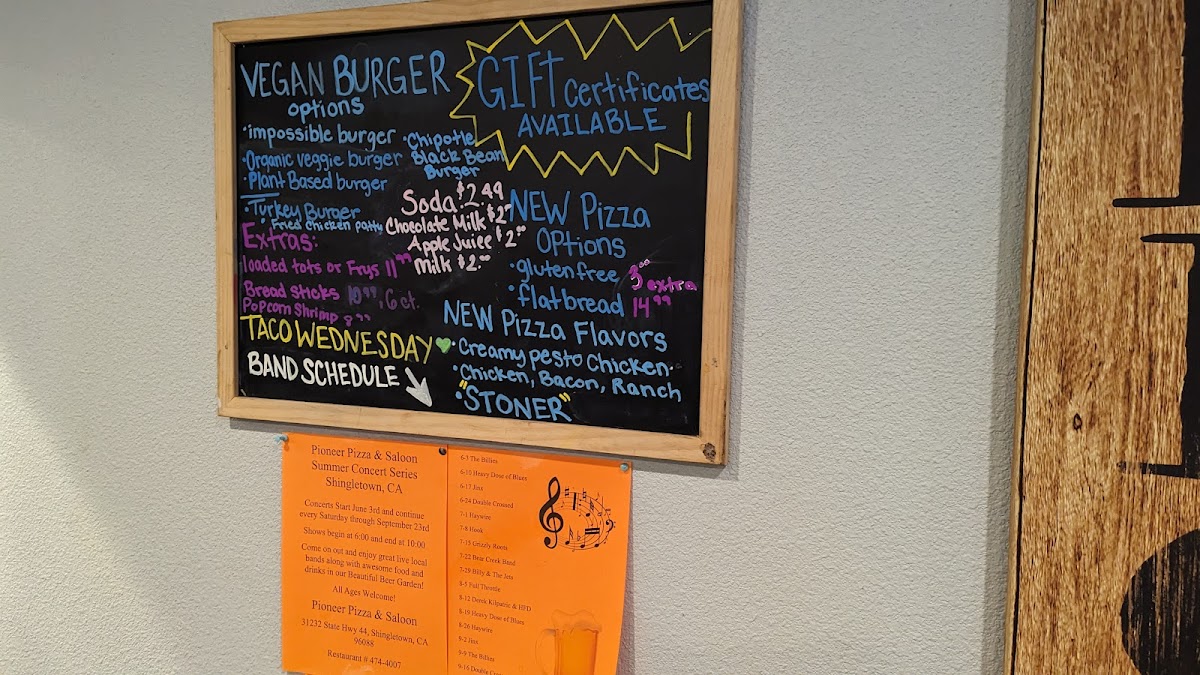 VEGAN BURGER
options
• impossible burger
• Organic veggie burger
• Plant Based burger
• Chipotle
Black Bean
Burger
• Turkey Burger
• Fried chicken patty
GIFT certificates
AVAILABLE
Soda: $2.49
Chocolate Milk $2
Apple Juice $2.00
Milk $2.00
Extras:
loaded tots or Frys 11.99
Bread sticks 10.99, 6 ct.
Popcorn Shrimp
TACO WEDNESDAY
BAND SCHEDULE
NEW Pizza
Options
• gluten free 3.00 extra
• flatbread 14.99
NEW Pizza Flavors
• Creamy pesto Chicken •
• Chicken, Bacon, Ranch
• "STONER"
Pioneer Pizza & Saloon
Summer Concert Series
Shingletown, CA
Concerts Start June 3rd and continue
every Saturday through September 23rd
Shows begin at 6:00 and end at 10:00
Come on out and enjoy great live local
bands along with awesome food and
drinks in our Beautiful Beer Garden!
All Ages Welcome!
Pioneer Pizza & Saloon
31232 State Hwy 44, Shingletown, CA
96088
Restaurant # 474-4007
6-3 The Billies
6-10 Heavy Dose of Blues
6-17 Jinx
6-24 Double Crossed
7-1 Haywire
7-8 Hook
7-15 Grizzly Room
7-22 Bear Creek Band
7-29 Billy & The Jets
8-5 Full Throttle
8-12 Derek Kilpatric & HFD
8-19 Heavy Dose of Blues
8-26 Haywire
9-2 Jinx
9-9 The Billies
9-16 Double